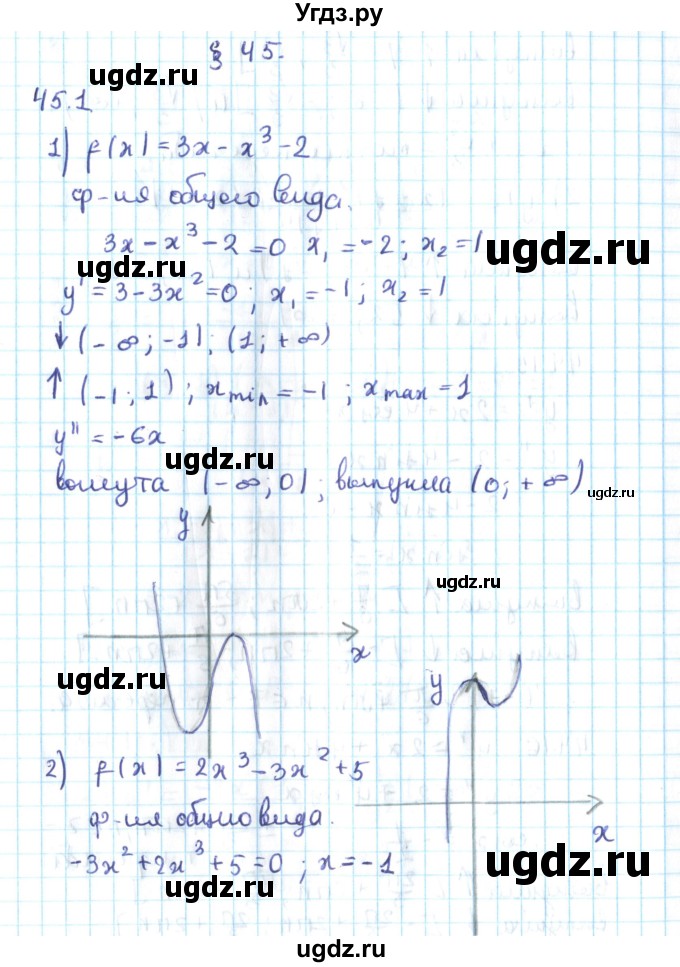 Угдз.ру
§ 45.
ugdz.ru
45.1
1) f(x) = 3x - x³ - 2
ф-ия общего вида.
3x - x³ - 2 = 0 x₁ = -2; x₂ = 1
ugdz.ru
ugdz.ru
y' = 3 - 3x² = 0; x₁ = -1; x₂ = 1
↓ (-∞; -1); (1; +∞)
↑ (-1; 1); x min = -1; x max = 1
y'' = -6x
ugdz.ru
вогнута (-∞; 0); выпукла (0; +∞)
ugdz.ru
y
ugdz.ru
x
ugdz.ru
y
2) f(x) = 2x³ - 3x² + 5
ф-ия общего вида.
x
-3x² + 2x³ + 5 = 0; x = -1
ugdz.ru
ugdz.ru
ugdz.ru